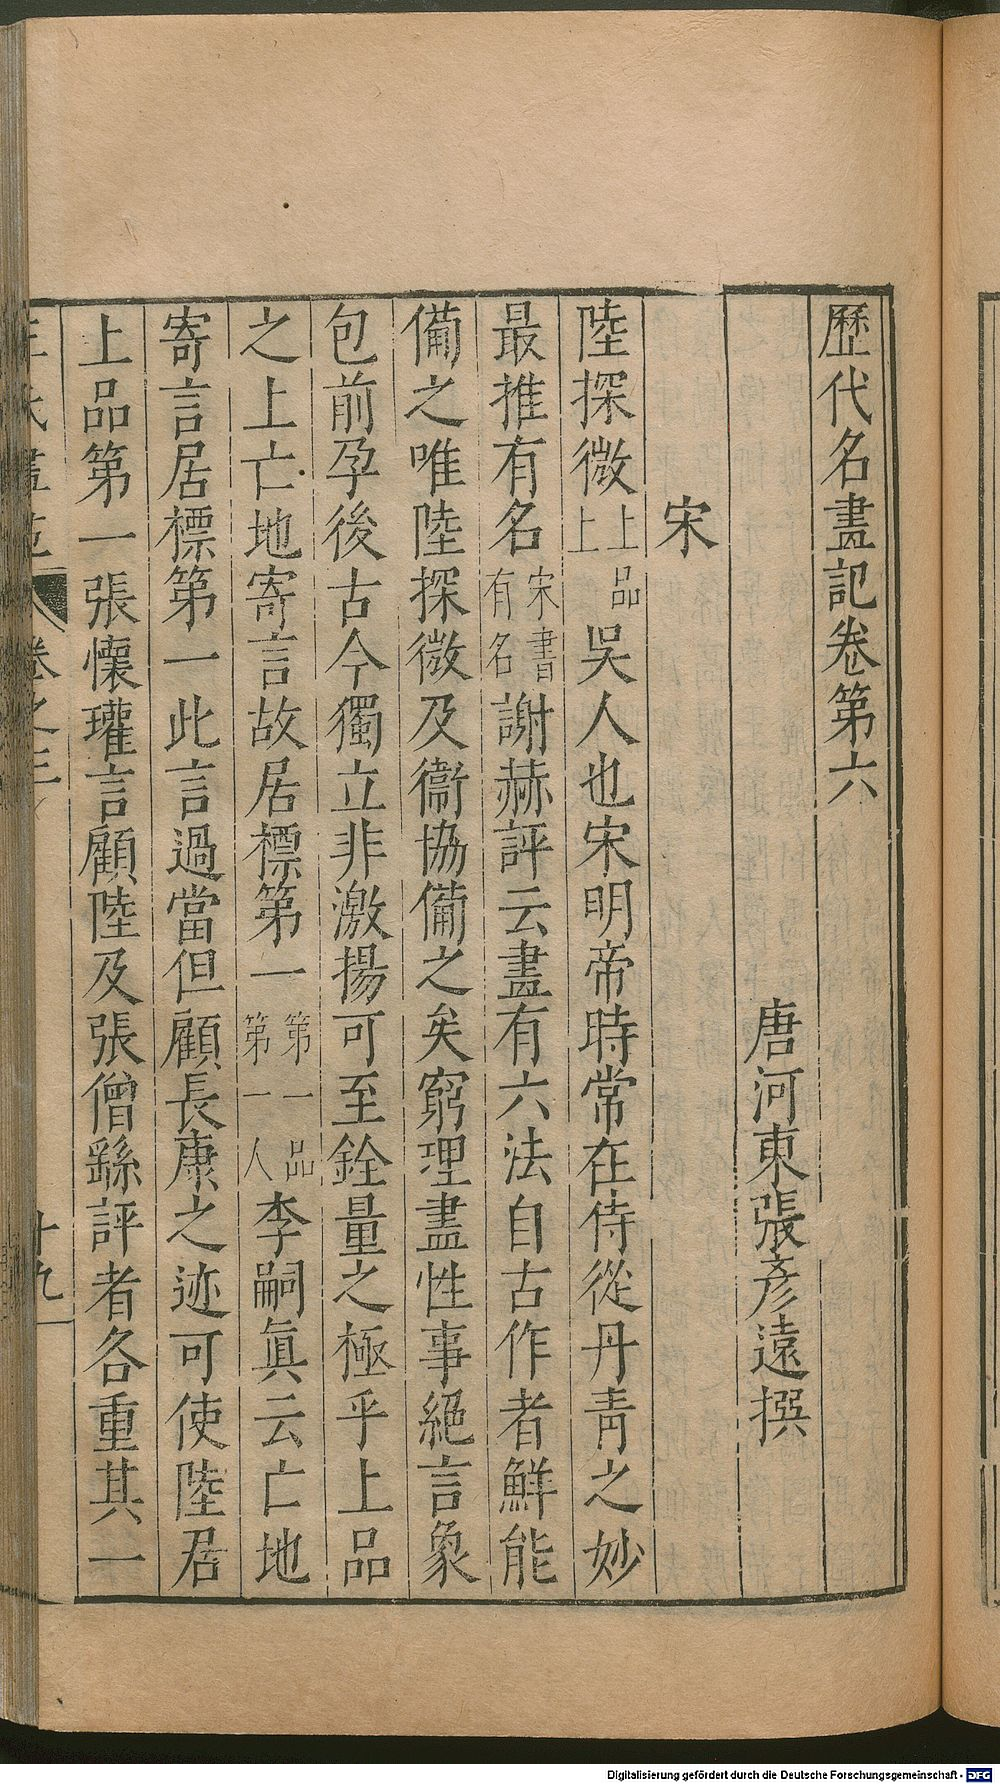 歷代名畫記卷第六
唐河東張彥遠撰
宋
陸探微上品上吳人也宋明帝時常在侍從丹青之妙
最推有名宋書有名謝赫評云畫有六法自古作者鮮能
備之唯陸探微及衞協備之矣窮理盡性事絕言象
包前孕後古今獨立非激揚可至銓量之極乎上品
之上亡地寄言故居標第一第一品第一人李嗣眞云亡地
寄言居標第一此言過當但顧長康之迹可使陸居
上品第一張懷瓘言顧陸及張僧繇評者各重其一
王氏畫苑 卷之三 十九
Digitalisierung gefördert durch die Deutsche Forschungsgemeinschaft - DFG